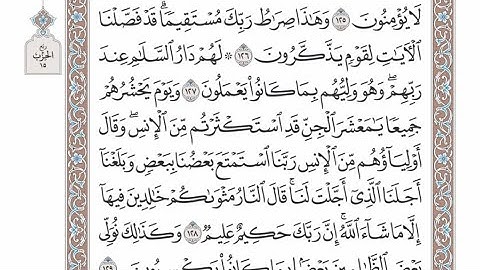 لَا يُؤْمِنُونَ ١٢٥ وَهَٰذَا صِرَٰطُ رَبِّكَ مُسْتَقِيمًا ۗ قَدْ فَصَّلْنَا
ربع
الحزب
١٥
ٱلْءَايَٰتِ لِقَوْمٍ يَذَّكَّرُونَ ١٢٦ ۞ لَهُمْ دَارُ ٱلسَّلَٰمِ عِندَ
رَبِّهِمْ ۖ وَهُوَ وَلِيُّهُم بِمَا كَانُوا۟ يَعْمَلُونَ ١٢٧ وَيَوْمَ يَحْشُرُهُمْ
جَمِيعًا يَٰمَعْشَرَ ٱلْجِنِّ قَدِ ٱسْتَكْثَرْتُم مِّنَ ٱلْإِنسِ ۖ وَقَالَ
أَوْلِيَآؤُهُم مِّنَ ٱلْإِنسِ رَبَّنَا ٱسْتَمْتَعَ بَعْضُنَا بِبَعْضٍ وَبَلَغْنَآ
أَجَلَنَا ٱلَّذِىٓ أَجَّلْتَ لَنَا ۚ قَالَ ٱلنَّارُ مَثْوَىٰكُمْ خَٰلِدِينَ فِيهَآ
إِلَّا مَا شَآءَ ٱللَّهُ ۗ إِنَّ رَبَّكَ حَكِيمٌ عَلِيمٌ ١٢٨ وَكَذَٰلِكَ نُوَلِّى
بَعْضَ ٱلظَّٰلِمِينَ بَعْضًۢا بِمَا كَانُوا۟ يَكْسِبُونَ ١٢٩